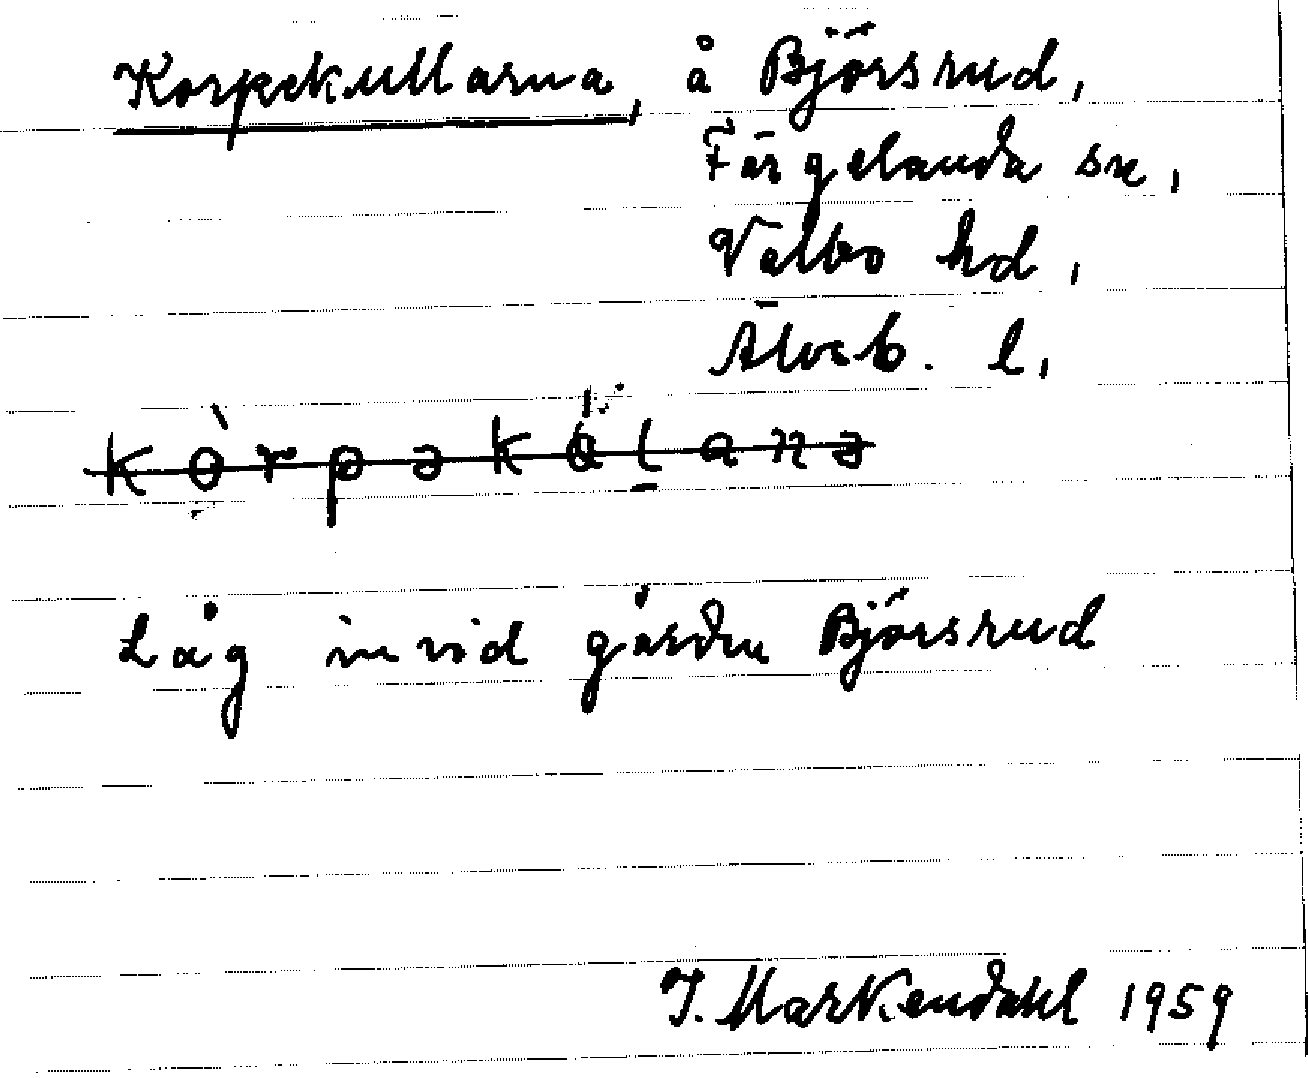 Korpekullarna, å Björsrud,
Färgelanda sn,
Valbo hd,
Älvsb. l,
Låg invid gården Björsrud
J. Markendahl 1959